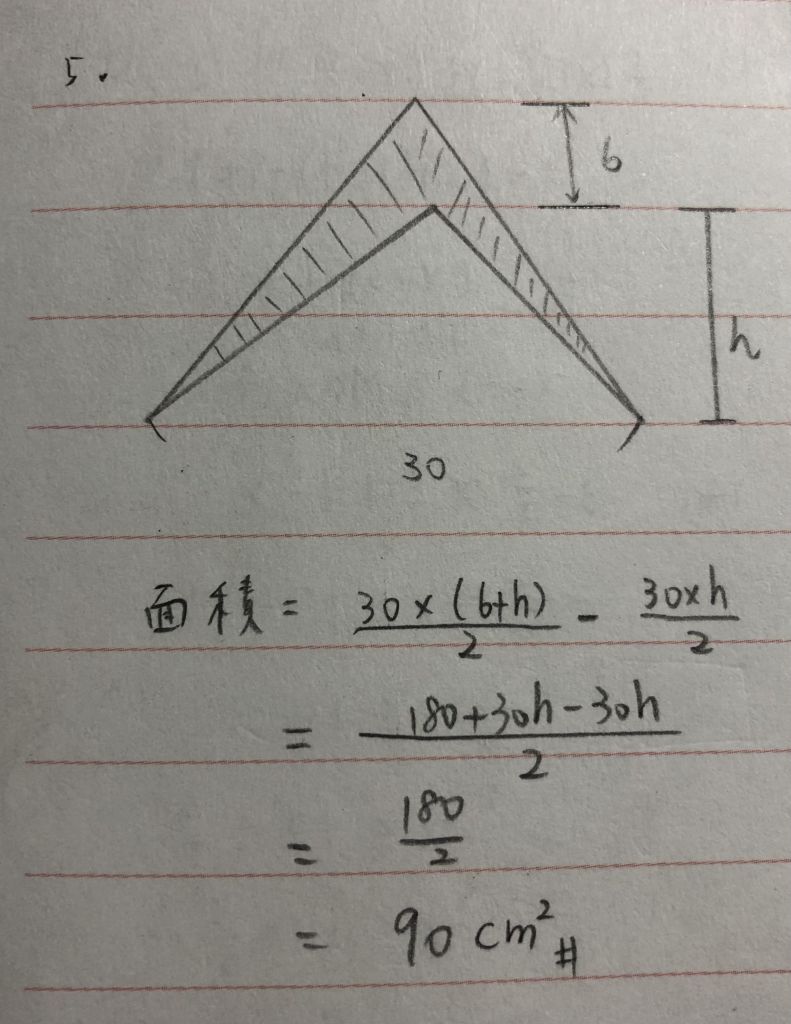 5.
6
h
30
面積 = 30×(6+h)/2 - 30×h/2
= 180+30h-30h/2
= 180/2
= 90 cm² #